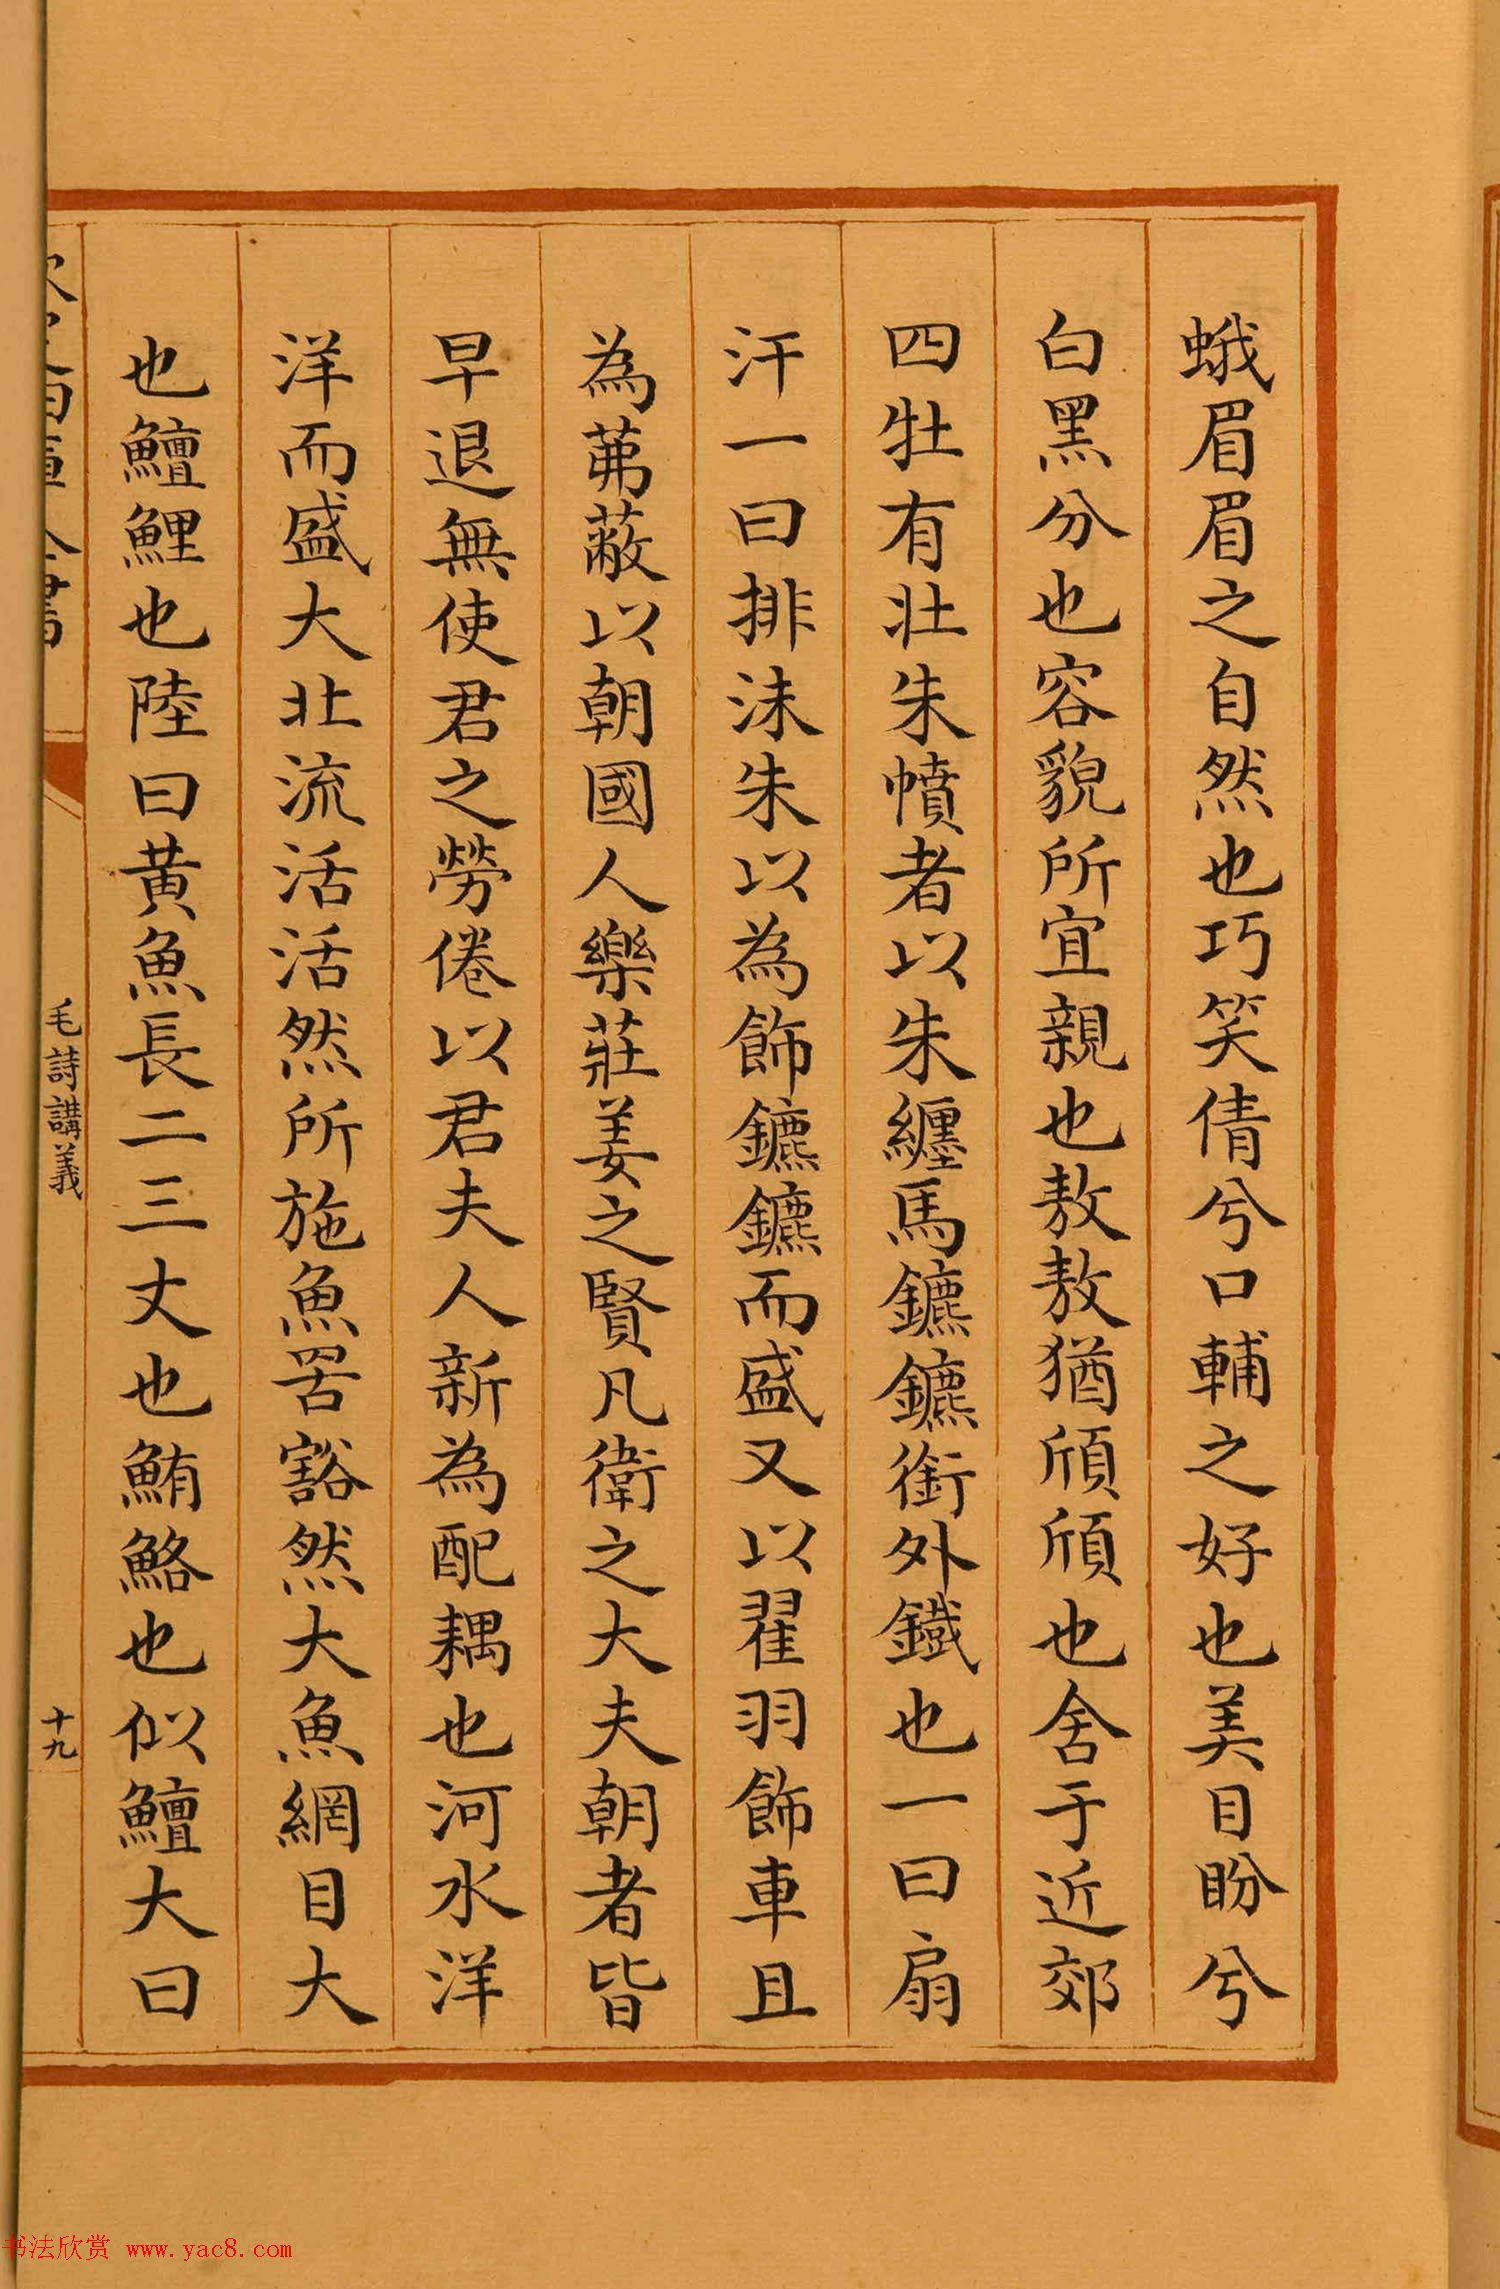 蛾眉眉之自然也巧笑倩兮口輔之好也美目盼兮
白黑分也容貌所宜親也敖敖猶頎頎也舍于近郊
四牡有壯朱幩者以朱纏馬鑣鑣銜外鐵也一曰扇
汗一曰排沫朱以為飾鑣鑣而盛又以翟羽飾車且
為茀蔽以朝國人樂莊姜之賢凡衛之大夫朝者皆
早退無使君之勞倦以君夫人新為配耦也河水洋
洋而盛大北流活活然所施魚罟豁然大魚網目大
也鱣鯉也陸曰黃魚長二三丈也鮪鮥也似鱣大曰
全書
毛詩講義
十九
书法欣赏 www.yac8.com